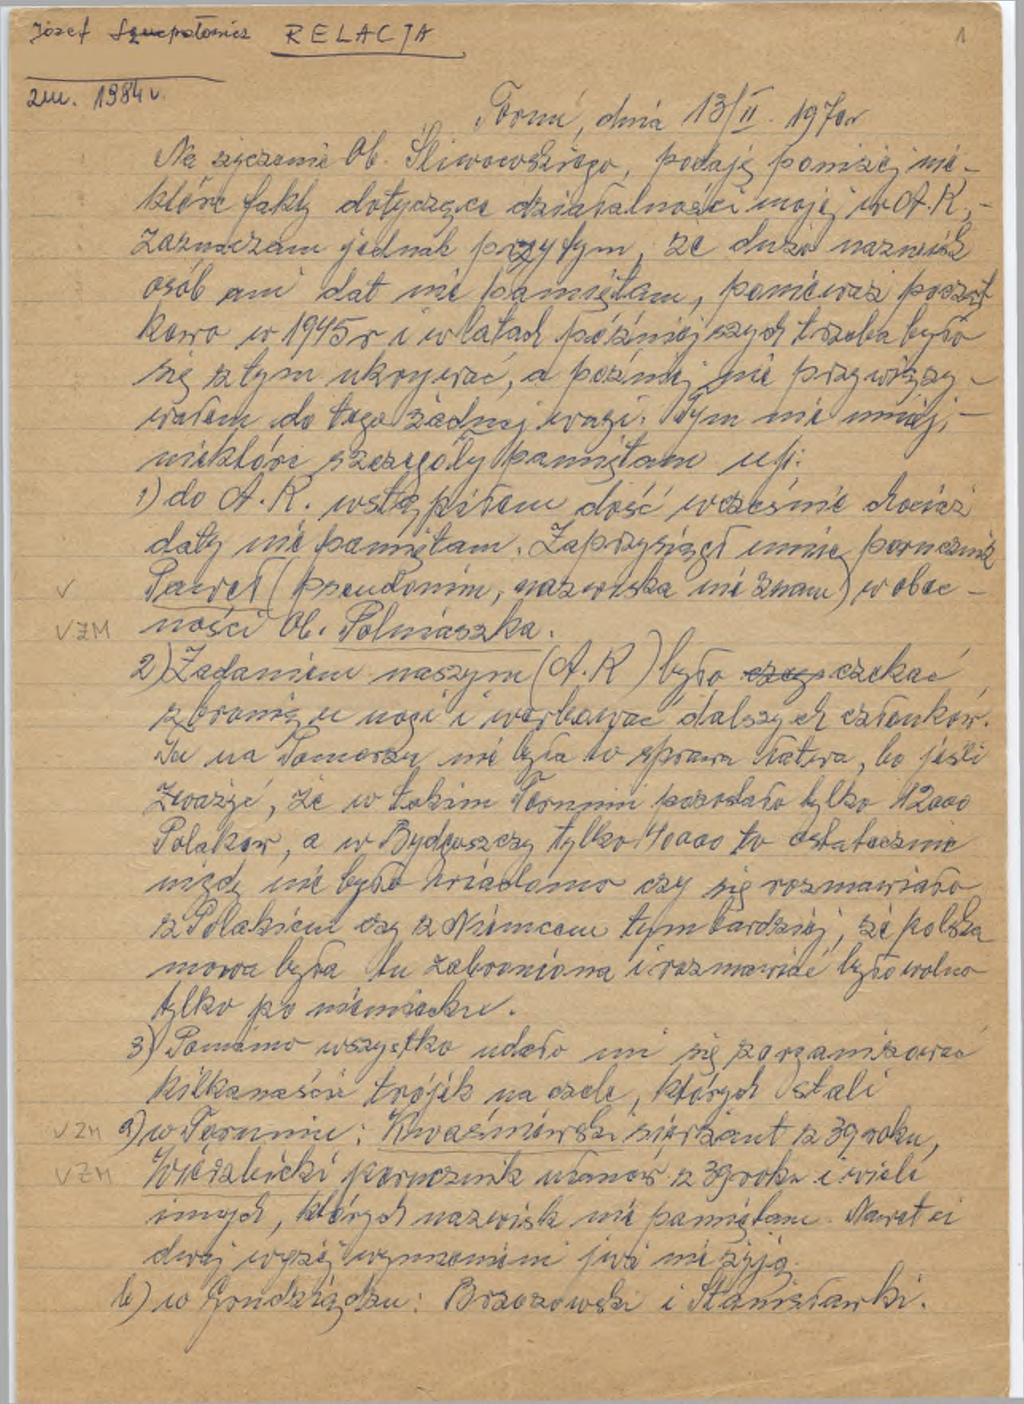 Józef RELACJA
1
zm. 1984 r.
Toruń, dnia 13/II. 1970r
Na życzenie Ob. Śliwowskiego, podaję poniżej nie-
które fakty dotyczące działalności mojej w A.K.,-
zaznaczam jednak przy tym, że dużo nazwisk
osób ani dat nie pamiętam, ponieważ począt
kowo w 1945 r i w latach późniejszych trzeba było
się z tym ukrywać, a później nie przywiązy-
wałem do tego żadnej wagi. Tym nie mniej,-
niektóre szczegóły pamiętam np:
1) do A.K. wstąpiłem dość wcześnie chociaż
daty nie pamiętam. Zaprzysiągł mnie porucznik
V Paweł (pseudonim, nazwiska nie znam) w obec-
V ŻM ności Ob. Polniaszka.
2) Zadaniem naszym (A.K) było czekać
z bronią u nogi i werbować dalszych członków.
Tu na Pomorzu nie była to sprawa łatwa, bo jeśli
zważyć, że w takim Toruniu pozostało tylko 12000
Polaków, a w Bydgoszczy tylko 40000 to ostatecznie
nigdy nie było wiadomo czy się rozmawiało
z Polakiem czy z Niemcem tymbardziej, że polska
mowa była tu zabroniona i rozmawiać było wolno
tylko po niemiecku.
3) Pomimo wszystko udało mi się zorganizować
kilkanaście trójek na czele, których stali
V ŻM a) w Toruniu: Kwaśniewski sierżant z 39 roku,
V ŻM Wierzbicki porucznik ułanów z 39 roku i wiele
innych, których nazwisk nie pamiętam. Nawet ci
dwaj wyżej wymienieni już nie żyją.
b) w Grudziądzu: Brzozowski i Stanisławski.